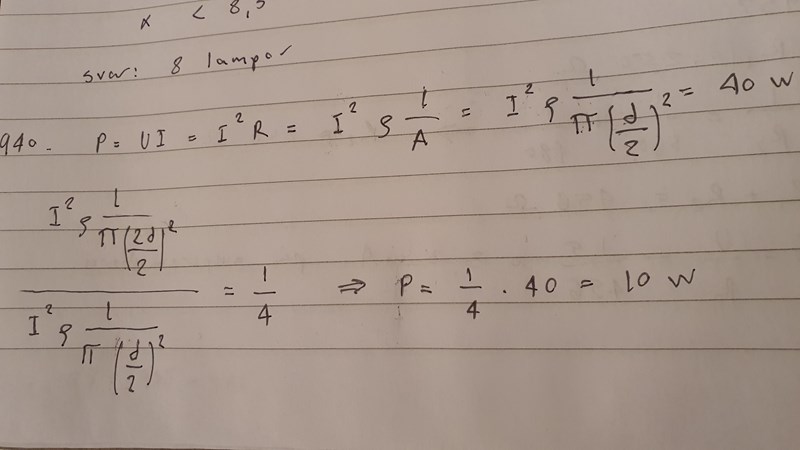 x < 8,3
svar: 8 lampor
940. P = UI = I² R = I² ρ l/A = I² ρ l/(π (d/2)²) = 40 W
(I² ρ l/(π (2d/2)²)) / (I² ρ l/(π (d/2)²)) = 1/4 ⇒ P = 1/4 · 40 = 10 W